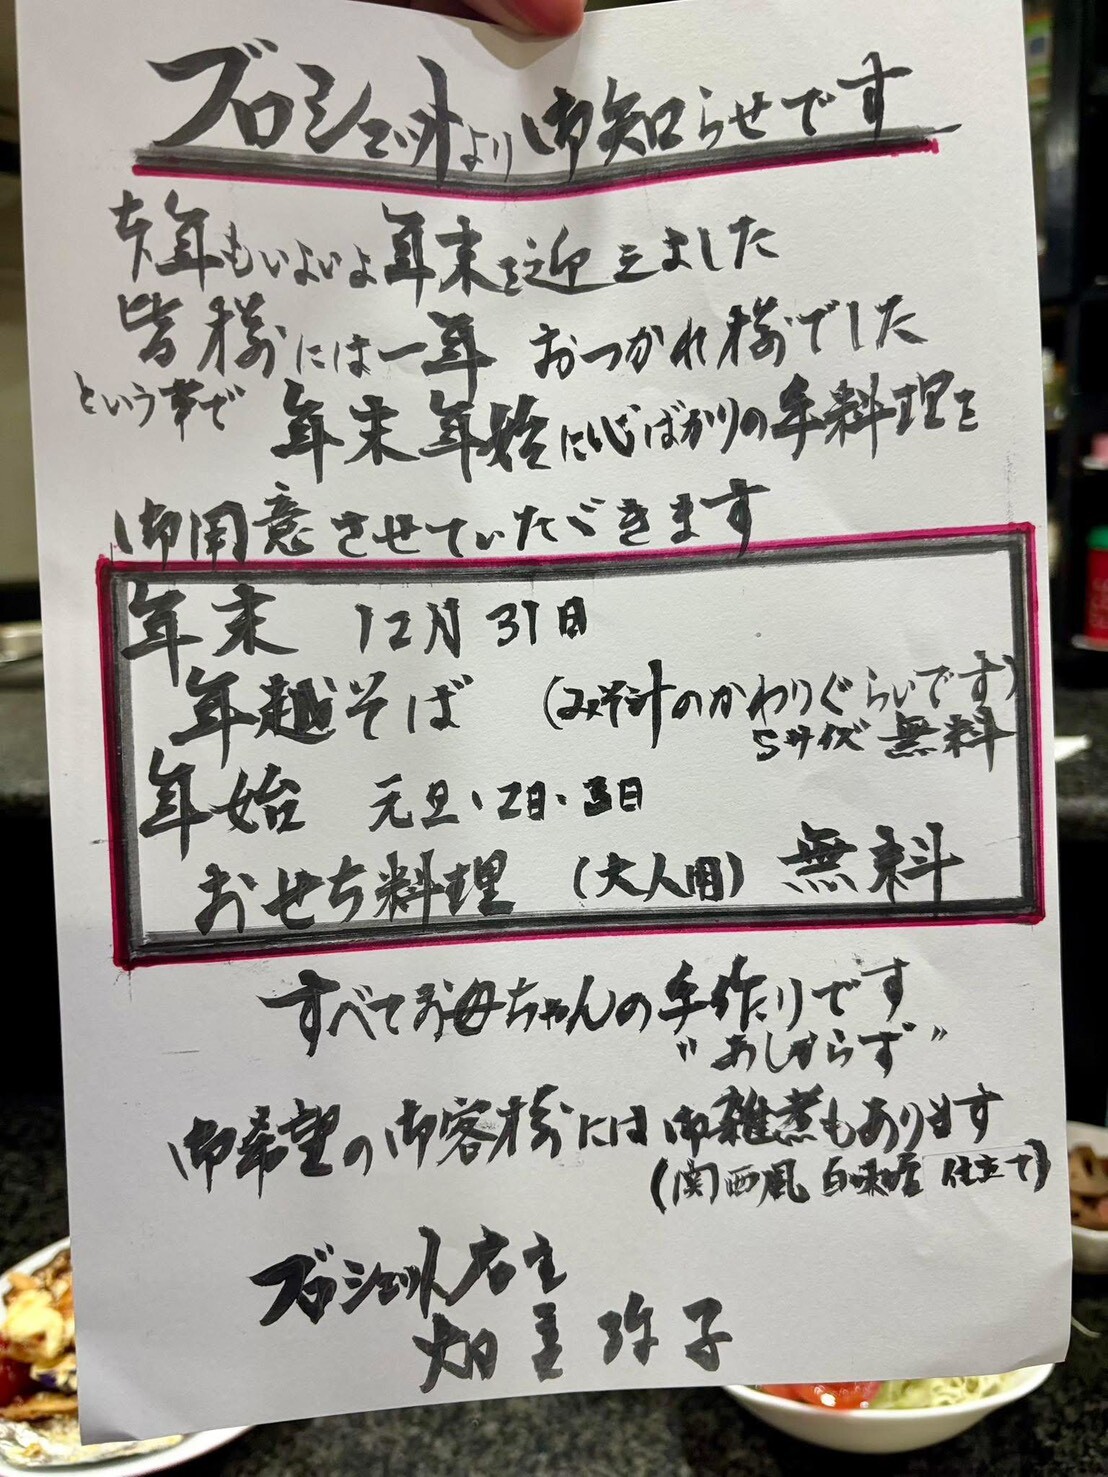 ブロシェットより御知らせです
本年もいよいよ年末を迎えました
皆様には一年 おつかれ様でした
という事で 年末年始に心ばかりの手料理を
御用意させていただきます
年末 12月31日
年越そば (みそ汁のかわりぐらいです)
Sサイズ 無料
年始 元旦・2日・3日
おせち料理 (大人用) 無料
すべてお母ちゃんの手作りです
"あしからず"
御希望の御客様には御雑煮もあります
(関西風 白味噌 仕立て)
ブロシェット店主
畑 弥子